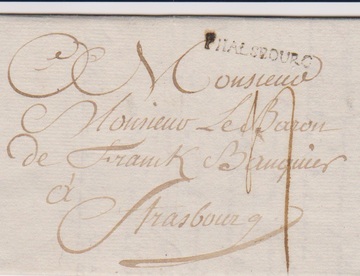 PHALSBOURG
A Monsieur
Monsieur Le Baron
de Franck Banquier
à
Strasbourg